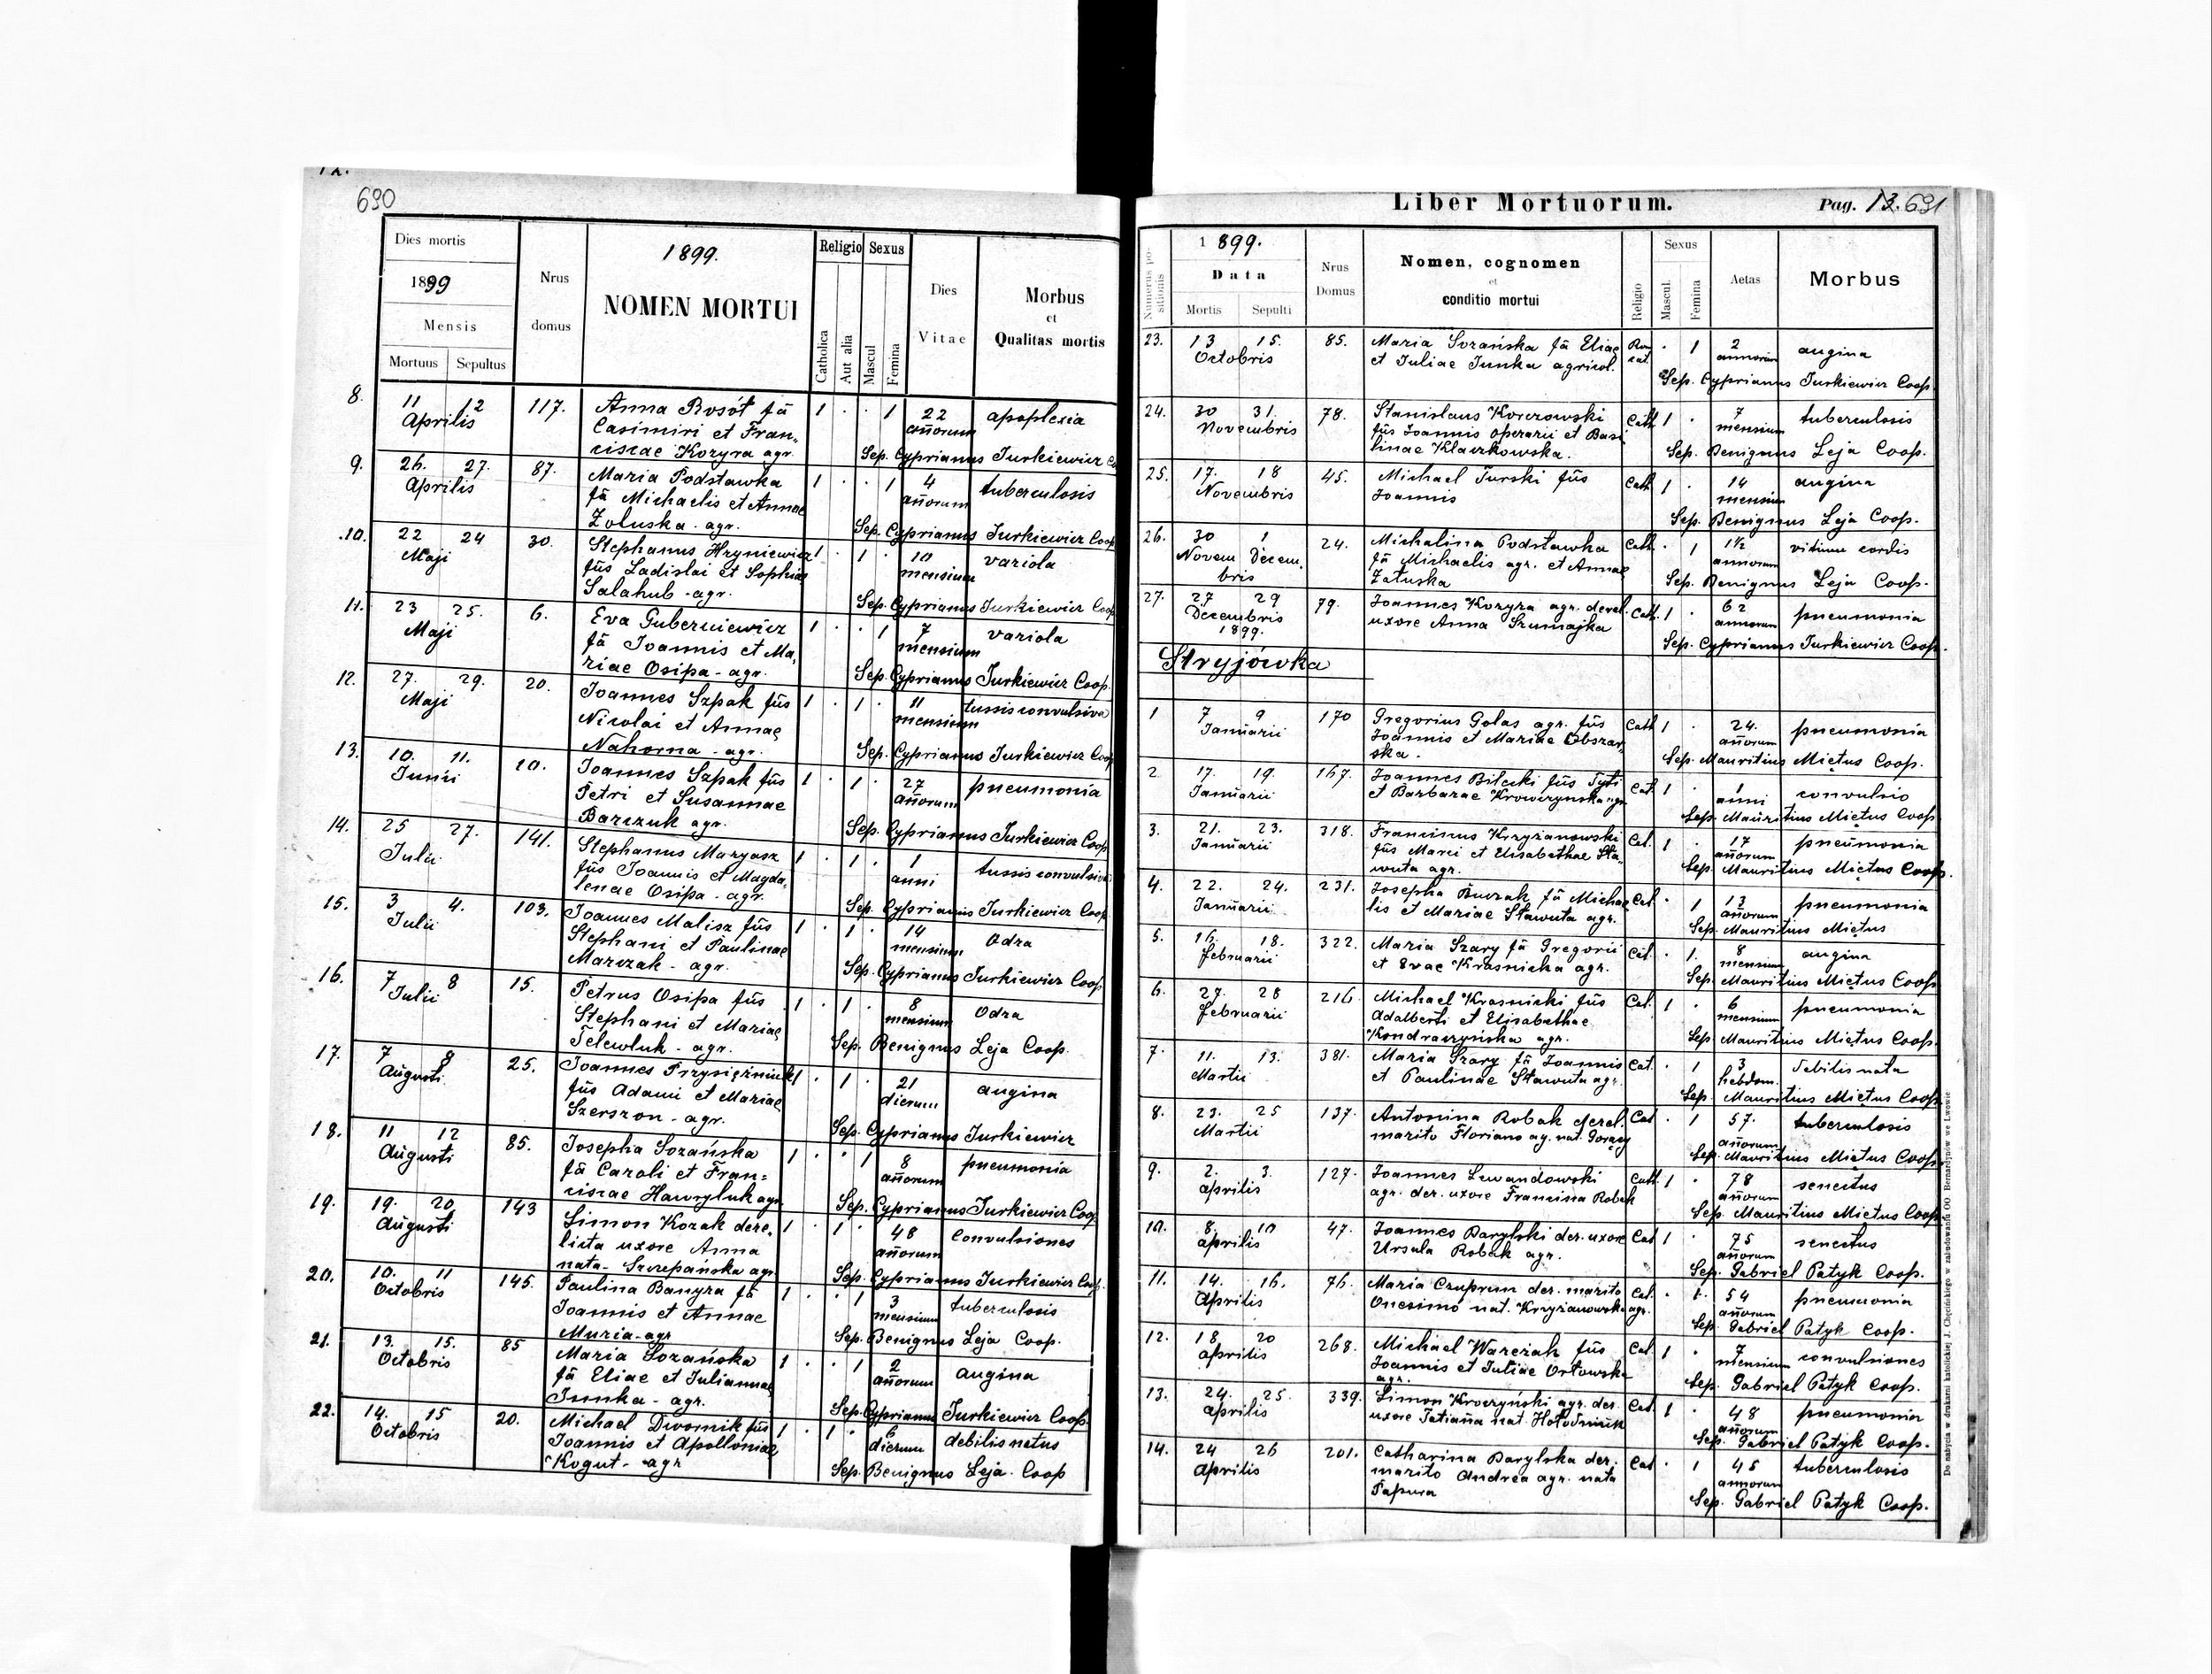 690
Dies mortis
1899
Mensis
Mortuus Sepultus
Nrus
domus
1899.
NOMEN MORTUI
Religio Sexus
Catholica
Aut alia
Mascul
Femina
Dies
Vitae
Morbus
et
Qualitas mortis
8. 11 12 117. Anna Rosół fä 1 . . 1 22 apoplexia
Aprilis Casimiri et Fran- añorum
ciscae Kozyra agr. Sep. Cyprianus Jurkiewicz
9. 26. 27. 87. Maria Podstawka 1 . . 1 4 tuberculosis
Aprilis fä Michaelis et Annae añorum
Zoluska - agr. Sep. Cyprianus Jurkiewicz Coop
10. 22 24 30. Stephanus Hryniewicz 1 . 1 . 10 variola
Maji füs Ladislai et Sophiae mensium
Salahub - agr. Sep. Cyprianus Jurkiewicz Coop
11. 23 25. 6. Eva Guberniewicz 1 . . 1 7 variola
Maji fä Joannis et Ma- mensium
riae Osipa - agr. Sep. Cyprianus Jurkiewicz Coop.
12. 27. 29. 20. Joannes Szpak füs 1 . 1 . 11 tussis convulsiva
Maji Nicolai et Annae mensium
Nahorna - agr. Sep. Cyprianus Jurkiewicz Coop
13. 10. 11. 10. Joannes Szpak füs 1 . 1 . 27 pneumonia
Junii Petri et Susannae añorum
Barczuk agr. Sep. Cyprianus Jurkiewicz Coop
14. 25 27. 141. Stephanus Maryasz 1 . 1 . 1 tussis convulsiva
Julii füs Joannis et Magda- anni
lenae Osipa - agr. Sep. Cyprianus Jurkiewicz Coop
15. 3 4. 103. Joannes Malisz füs 1 . 1 . 14 Odra
Julii Stephani et Paulinae mensium
Marczak - agr. Sep. Cyprianus Jurkiewicz Coop
16. 7 8 15. Petrus Osipa füs 1 . 1 . 8 Odra
Julii Stephani et Mariae mensium
Telewluk - agr. Sep. Benignus Leja Coop.
17. 7 8 25. Joannes Przysiężniuk 1 . 1 . 21 angina
Augusti füs Adami et Mariae dierum
Szerszon - agr. Sep. Cyprianus Jurkiewicz
18. 11 12 85. Josepha Sozańska 1 . . 1 8 pneumonia
Augusti fä Caroli et Fran= añorum
ciscae Hawryluk agr. Sep. Cyprianus Jurkiewicz Coop
19. 19. 20 143 Simon Kozak dere- 1 . 1 . 48 convulsiones
Augusti licta uxore Anna añorum
nata - Szczepańska agr. Sep. Cyprianus Jurkiewicz Coop.
20. 10. 11 145. Paulina Banyra fä 1 . . 1 3 tuberculosis
Octobris Joannis et Annae mensium
Muria - agr Sep. Benignus Leja Coop.
21. 13. 15. 85 Maria Sozańska 1 . . 1 2 angina
Octobris fä Eliae et Juliannae añorum
Junka - agr. Sep. Cyprianus Jurkiewicz Coop
22. 14. 15 20. Michael Dwornik füs 1 . 1 . 6 debilis natus
Octobris Joannis et Apolloniae dierum
Kogut - agr Sep. Benignus Leja. Coop
Liber Mortuorum.
Pag. 13. 691
Numerus positionis
1899.
Data
Mortis Sepulti
Nrus
Domus
Nomen, cognomen
et
conditio mortui
Religio
Sexus
Mascul.
Femina
Aetas
Morbus
23. 13 15. 85. Maria Sozańska fä Eliae Rom . 1 2 angina
Octobris et Juliae Junka agricol. cat. annorum
Sep. Cyprianus Jurkiewicz Coop.
24. 30 31. 78. Stanislaus Korczowski Cath 1 . 7 tuberculosis
Novembris füs Joannis operarii et Basi mensium
linae Klaczkowska. Sep. Benignus Leja Coop.
25. 17. 18 45. Michael Turski füs Cath 1 . 14 angina
Novembris Joannis mensium
Sep. Benignus Leja Coop.
26. 30 1 24. Michalina Podstawka Cath. . 1 1½ vitium cordis
Novem Decem. fä Michaelis agr. et Annae annorum
bris Załuska Sep. Benignus Leja Coop.
27. 27 29 79. Joannes Kozyra agr. derel. Cath. 1 . 62 pneumonia
Decembris uxore Anna Szumajka annorum
1899. Sep. Cyprianus Jurkiewicz Coop.
Stryjówka
1 7 9 170 Gregorius Golas agr. füs Cath 1 . 24. pneumonia
Januarii Joannis et Mariae Obszar- añorum
ska. Sep. Mauritius Miętus Coop.
2. 17. 19. 167. Joannes Bilecki füs Tyti Cat. 1 . 1 convulsio
Januarii et Barbarae Krowczynska agr anni
Sep. Mauritius Miętus Coop
3. 21. 23. 318. Franciscus Krzyżanowski Cat. 1 . 17 pneumonia
Januarii füs Marci et Elisabethae Sta- añorum
wuta agr. Sep. Mauritius Miętus Coop.
4. 22. 24. 231. Josepha Burzak fä Michae Cat . 1 12 pneumonia
Januarii lis et Mariae Stawuta agr. añorum
Sep. Mauritius Miętus
5. 16. 18. 322. Maria Szary fä Gregorii Cat. . 1. 8 angina
februarii et Evae Krasnicka agr. mensium
Sep. Mauritius Miętus Coop
6. 27. 28 216. Michael Krasnicki füs Cat. 1 . 6 pneumonia
februarii Adalberti et Elisabethae mensium
Kondraczyńska agr. Sep. Mauritius Miętus Coop.
7. 11. 13. 381. Maria Szary fä Joannis Cat. . 1 3 debilis nata
Martii et Paulinae Stawuta agr. hebdom.
Sep. Mauritius Miętus Coop
8. 23. 25 137. Antonina Robak derel. Cat . 1 57. tuberculosis
Martii marito Floriano ag. nat. Gorący añorum
Sep. Mauritius Miętus Coop.
9. 2. 3. 127. Joannes Lewandowski Cath. 1 . 78 senectus
aprilis agr. der. uxore Francisca Robak añorum
Sep. Mauritius Miętus Coop.
10. 8. 10 47. Joannes Darylski der. uxore Cat 1 . 75 senectus
aprilis Ursula Robak agr. añorum
Sep. Gabriel Patyk Coop.
11. 14. 16. 76. Maria Czuprun der. marito Cat. . 1. 54 pneumonia
Aprilis Onesimo nat. Krzyżanowska agr. añorum
Sep. Gabriel Patyk Coop.
12. 18 20 268. Michael Warczak füs Cat. 1 . 7 convulsiones
aprilis Joannis et Juliae Orłowska mensium
agr. Sep. Gabriel Patyk Coop.
13. 24. 25. 339. Simon Kroczyński agr. der. Cat. 1 . 48 pneumonia
aprilis uxore Tatiana nat. Hołodniuk añorum
Sep. Gabriel Patyk Coop.
14. 24 26 201. Catharina Darylska der. Cat . 1 45 tuberculosis
Aprilis marito Andrea agr. nata annorum
Papura Sep. Gabriel Patyk Coop.
Do nabycia w drukarni katolickiej J. Chęcińskiego w zabudowaniu OO. Bernardynów we Lwowie